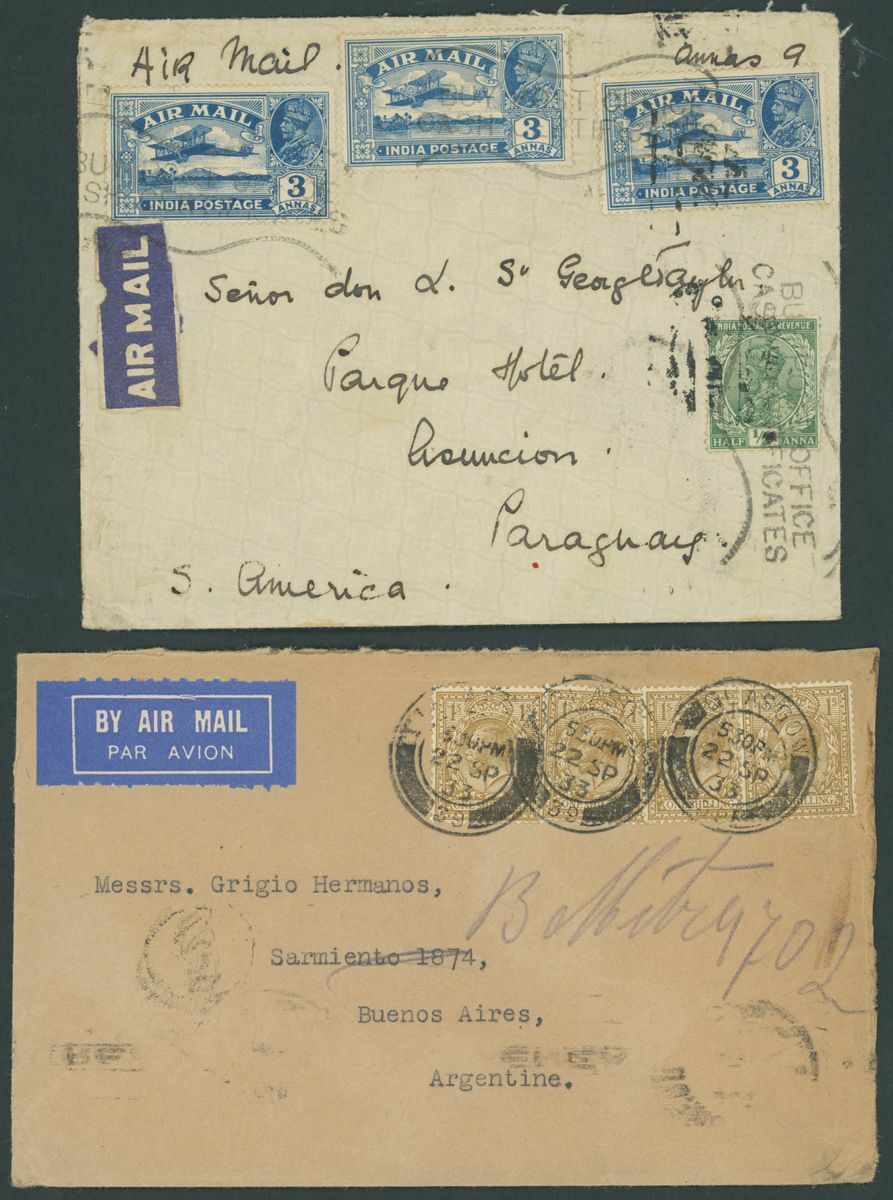 Air Mail.
annas 9
AIR MAIL
INDIA POSTAGE
3
ANNAS
AIR MAIL
INDIA POSTAGE
3
ANNAS
AIR MAIL
INDIA POSTAGE
3
ANNAS
AIR MAIL
Señor don L. St George Taylor
Parque Hotel.
Asuncion.
Paraguay.
S. America.
INDIA POSTAGE & REVENUE
HALF 1/2 ANNA
OFFICE
FICATES
BY AIR MAIL
PAR AVION
5.30PM
22 SP
33
5.30PM
22 SP
33
GLASGOW
5.30PM
22 SP
33
Messrs. Grigio Hermanos,
Sarmiento 1874,
B Mitre 9702
Buenos Aires,
Argentine.